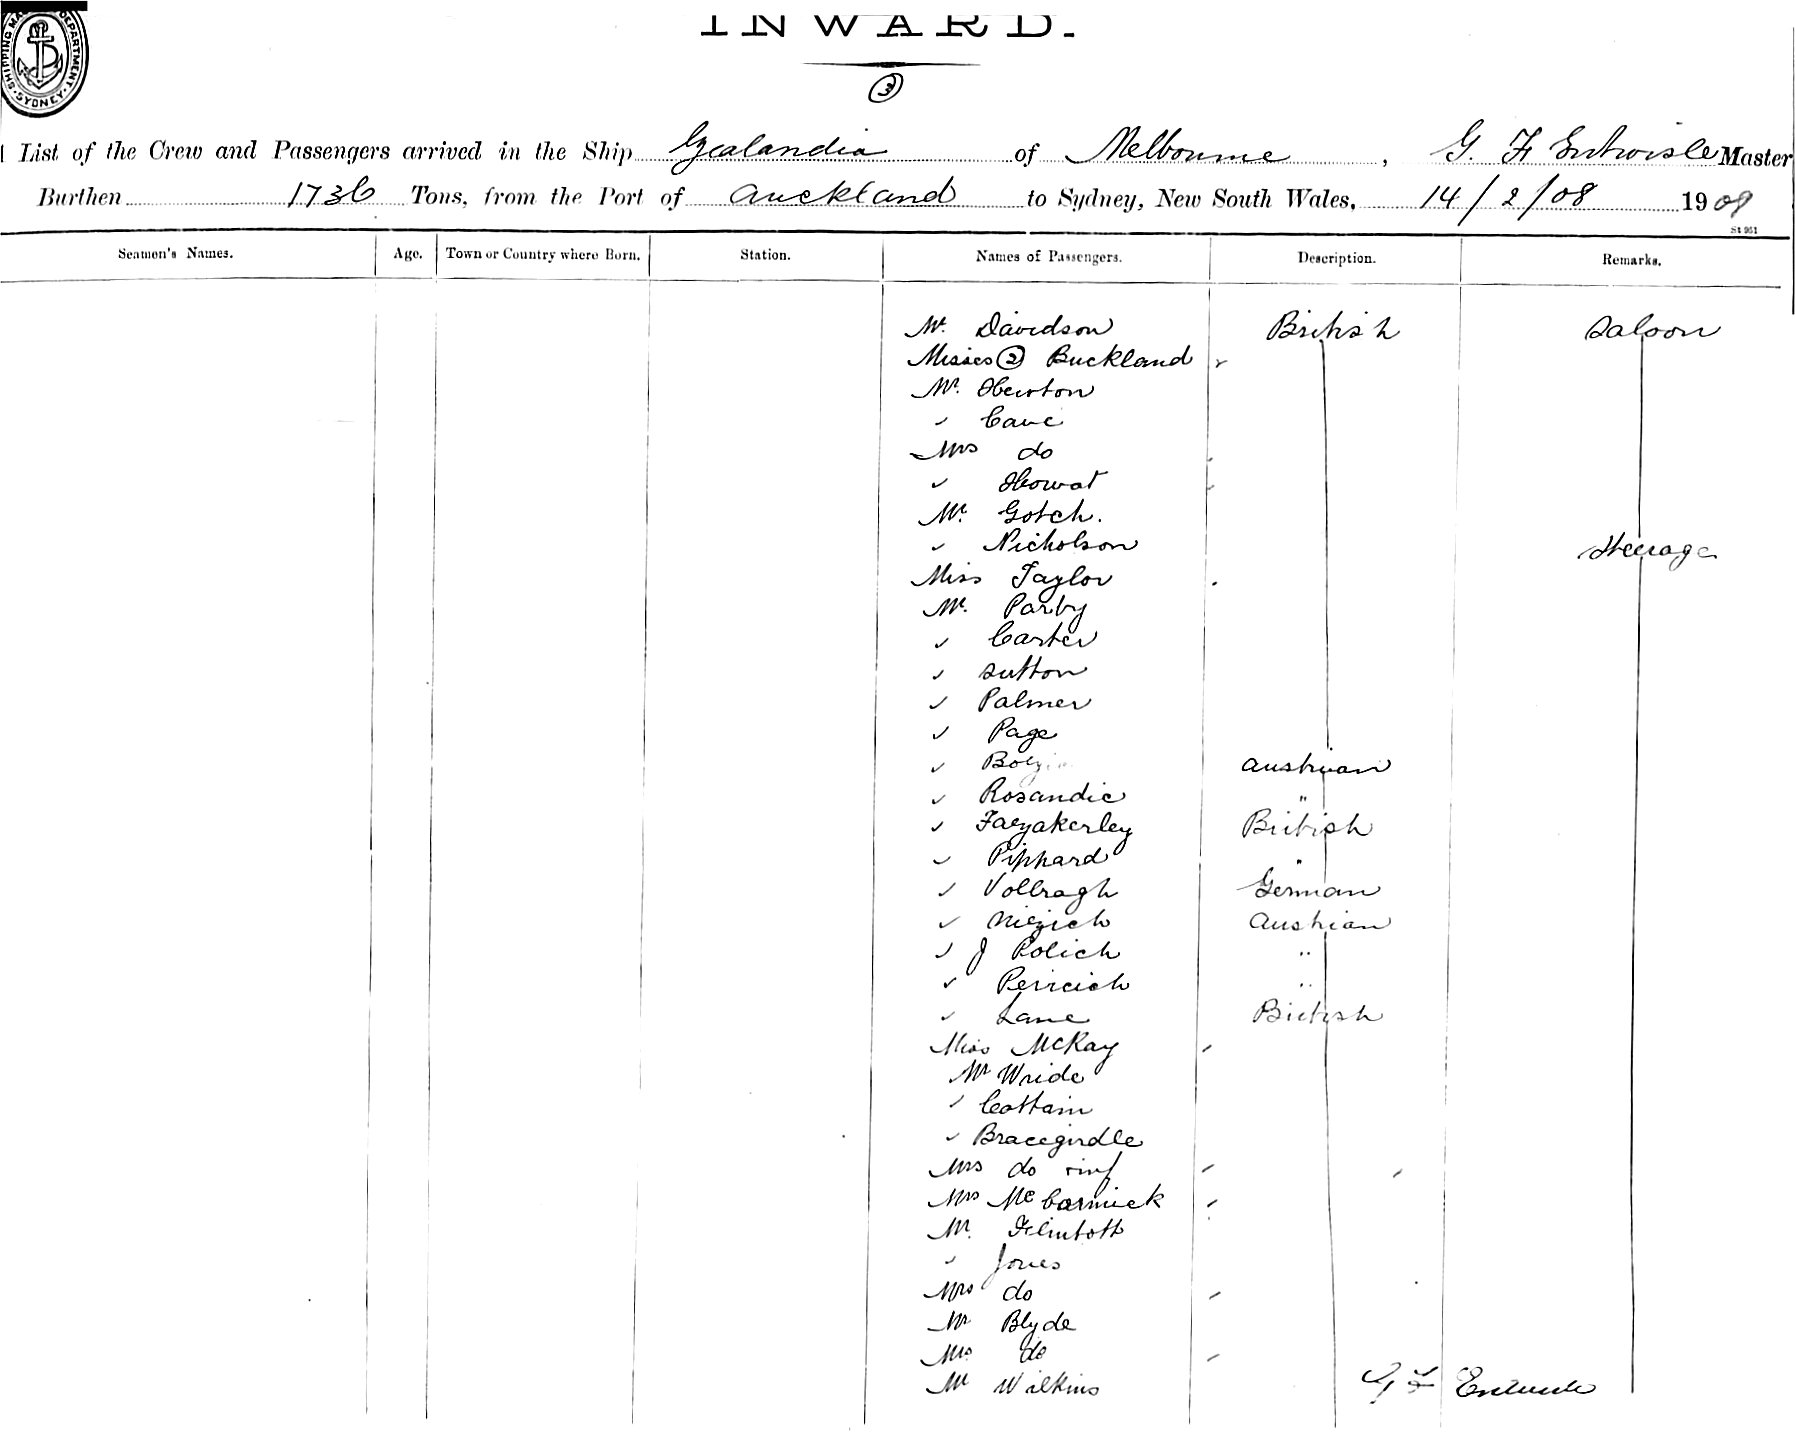 INWARD.
SHIPPING MA DEPARTMENT. SYDNEY.
3
List of the Crew and Passengers arrived in the Ship Zealandia of Melbourne, G. F. Entwisle Master
Burthen 1736 Tons, from the Port of Auckland to Sydney, New South Wales, 14/2/08 1908
St 951
Seamen's Names. Age. Town or Country where Born. Station. Names of Passengers. Description. Remarks.
Mr. Davidson British Saloon
Misses 2 Buckland
Mr. Hewton
" Cave
Mrs do
" Howat
Mr. Gotch.
" Nicholson Steerage
Miss Taylor
Mr. Parby
" Carter
" Sutton
" Palmer
" Page
" Austrian
" Rosandic "
" Fazakerley British
" Piphard "
" Vollragh German
" Niezich Austrian
" J Polich "
" Pericich "
" Lane British
Miss McKay
Mr Wride
" Cottain
" Bracegirdle
Mrs do & inf
Mrs McCormick
Mr.
" Jones
Mrs do
Mr Blyde
Mrs do
Mr Wilkins G F Entwisle